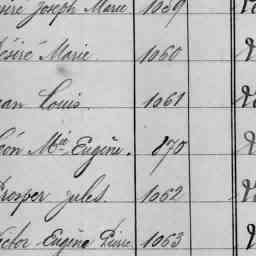 Joseph Marie 1059
Désiré Marie. 1060
Jean Louis. 1061
Léon Mie Eugène. 870
Prosper Jules. 1062
Victor Eugène Pierre 1063